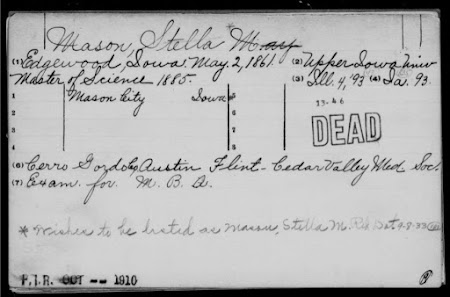 Mason, Stella May
(1) Edgewood, Iowa. May 2, 1861. (2) Upper Iowa Univ
Master of Science 1885. (3) Ill. 4, '93 (4) Ia. '93.
1 Mason City Iowa 5
2 6
3 7
4 8
13-46
DEAD
(6) Cerro Gordo Co Austin Flint-Cedar Valley Med Soc.
(7) Exam. for M. B. A.
* Wishes to be listed as Mason, Stella M. 9-8-33
P.I.R. OCT -- 1910